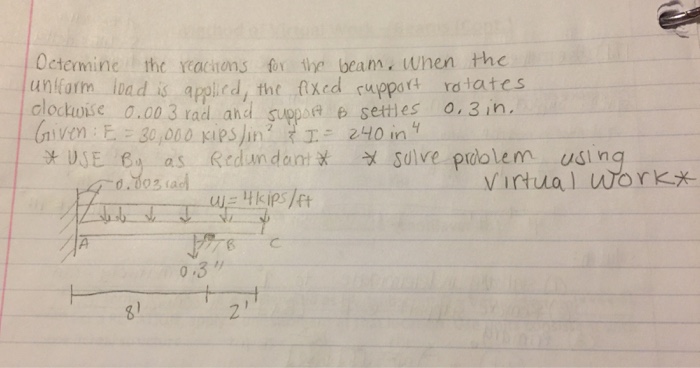 Determine the reactions for the beam. When the
uniform load is applied, the fixed support rotates
clockwise 0.003 rad and support B settles 0.3 in.
Given: E = 30,000 kips/in² & I = 240 in⁴
* USE By as Redundant * * solve problem using
Virtual Work *
0.003 rad
W = 4 kips/ft
A B C
0.3"
8' 2'